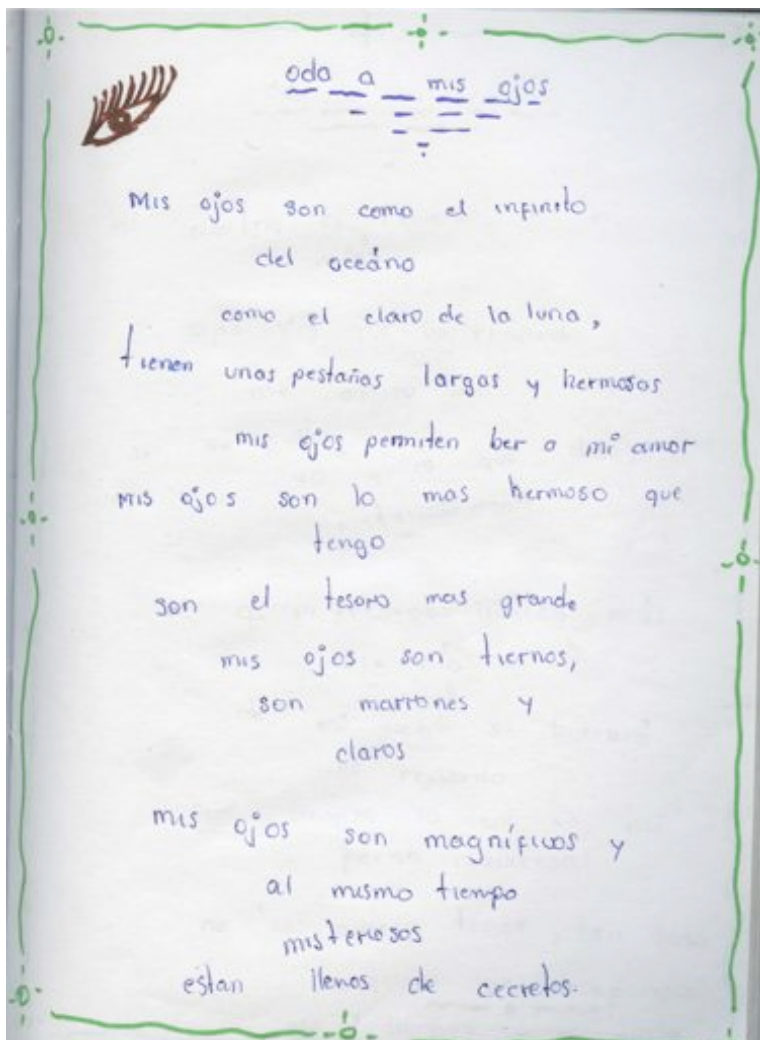 oda a mis ojos
Mis ojos son como el infinito
del oceáno
como el claro de la luna,
tienen unas pestañas largas y hermosas
mis ojos permiten ber a mi amor
Mis ojos son lo mas hermoso que
tengo
son el tesoro mas grande
mis ojos son tiernos,
son marrones y
claros
mis ojos son magníficos y
al mismo tiempo
misteriosos
estan llenos de cecretos.